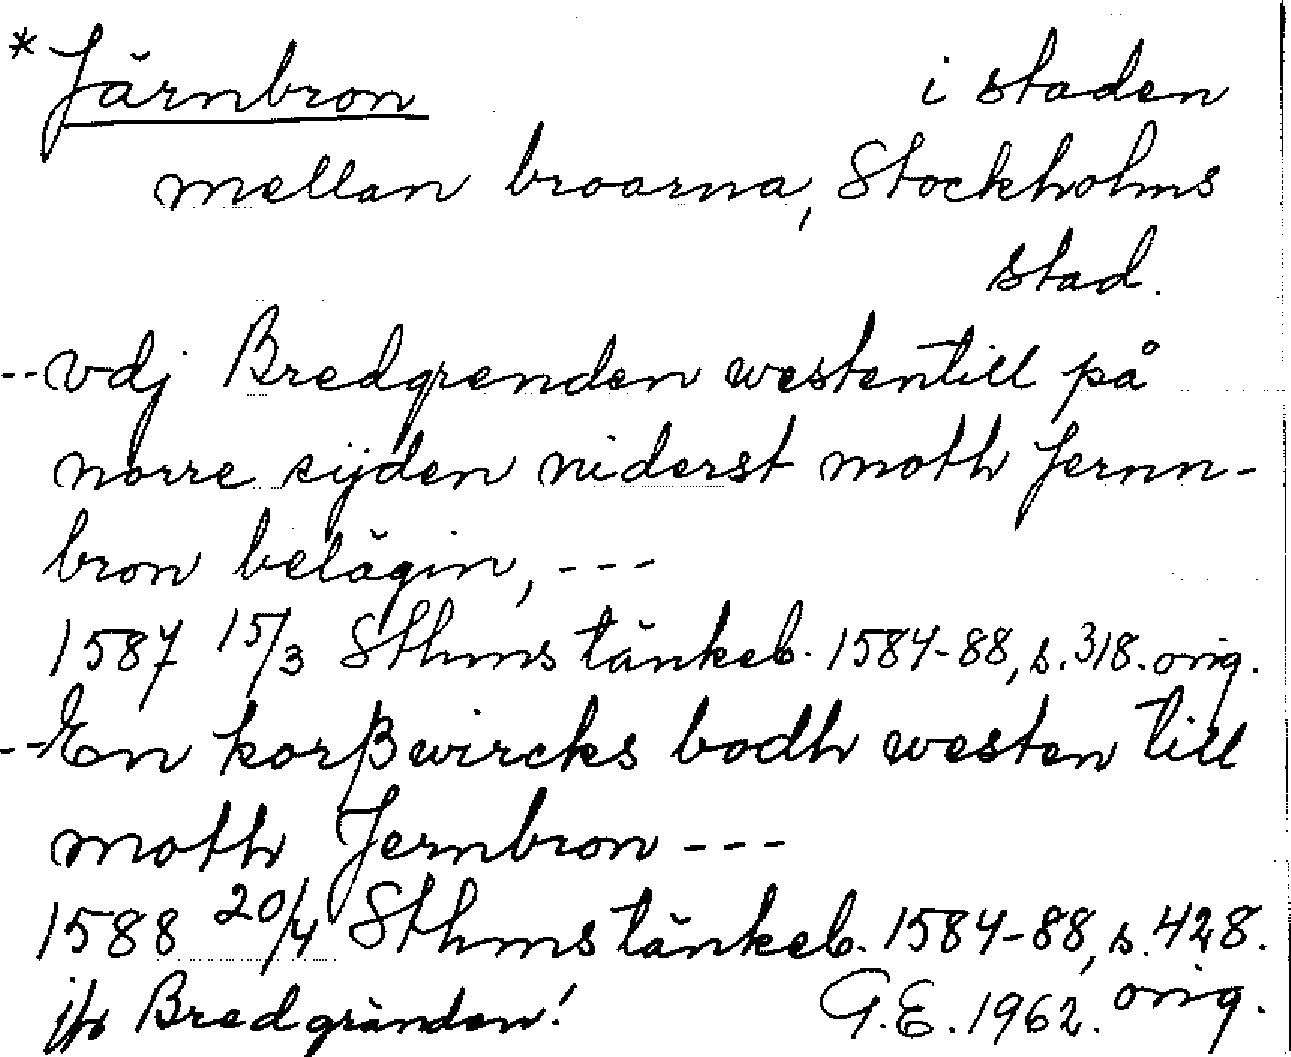 *Järnbron i staden
mellan broarna, Stockholms
stad.
--vdj Bredgrenden westentill på
norre sijden niderst moth Jernn-
bron belägin, ---
1587 15/3 Sthms tänkeb. 1584-88, s. 318. orig.
--En korßwircks bodh westen till
moth Jernbron ---
1588 20/4 Sthms tänkeb. 1584-88, s. 428.
orig.
jfr Bredgränden! G.E. 1962.